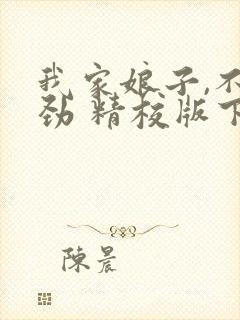 我家娘子,不
劲 精校版下
陳晨